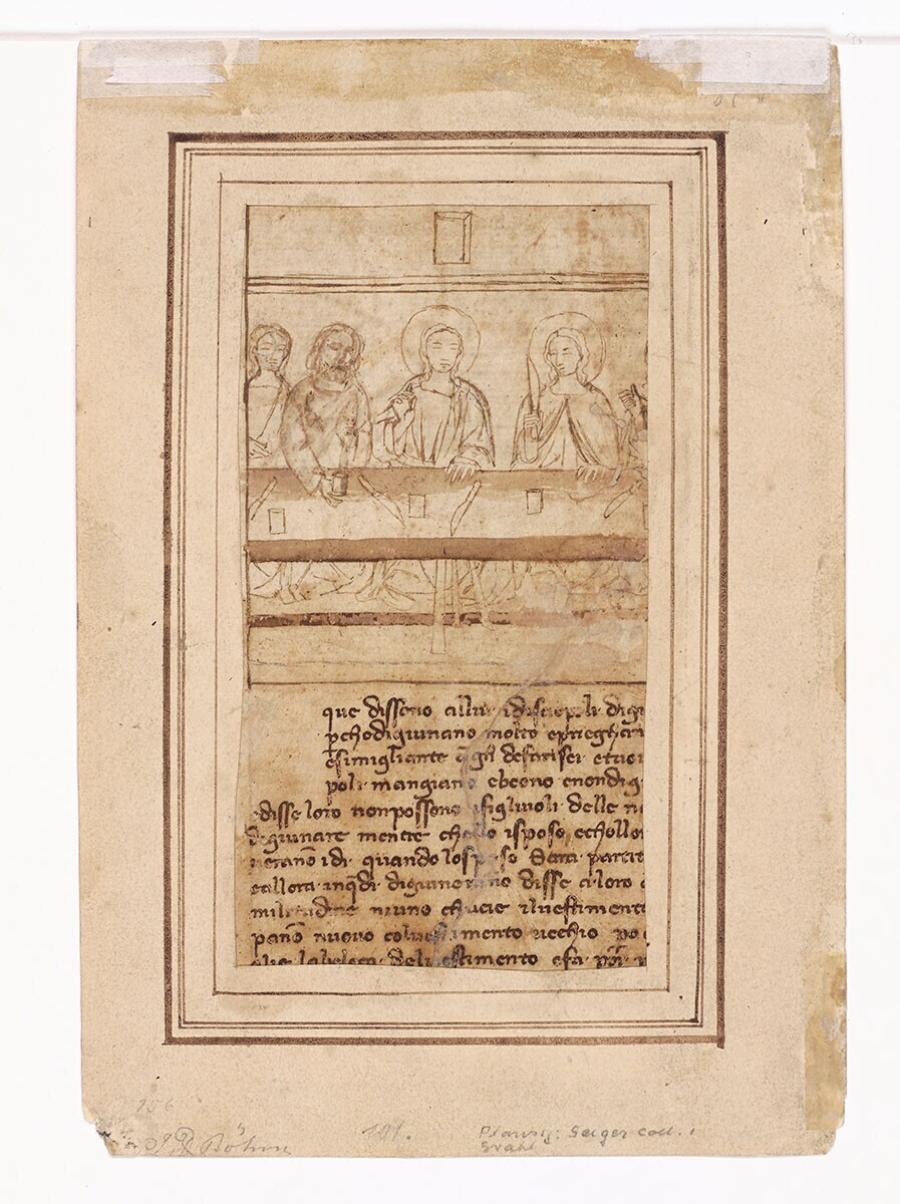 que disseno allui idisciepoli digi
pchodigiunano molto epriegham
esimigliante q̃gli defarisei etuoi
poli mangiano ebeono enondig
edisse loro nonpossono ifigliuoli delle n
degiunare mentre chello isposo echollo
uerano idi quando losposo sara partit
eallora inq̃di digiuneranno disse aloro
militudine niuno chucie iluestimento
pano nuouo coluestimento uecchio po
deli estimento efa
156
J D Böhm
101.
Geiger coll.